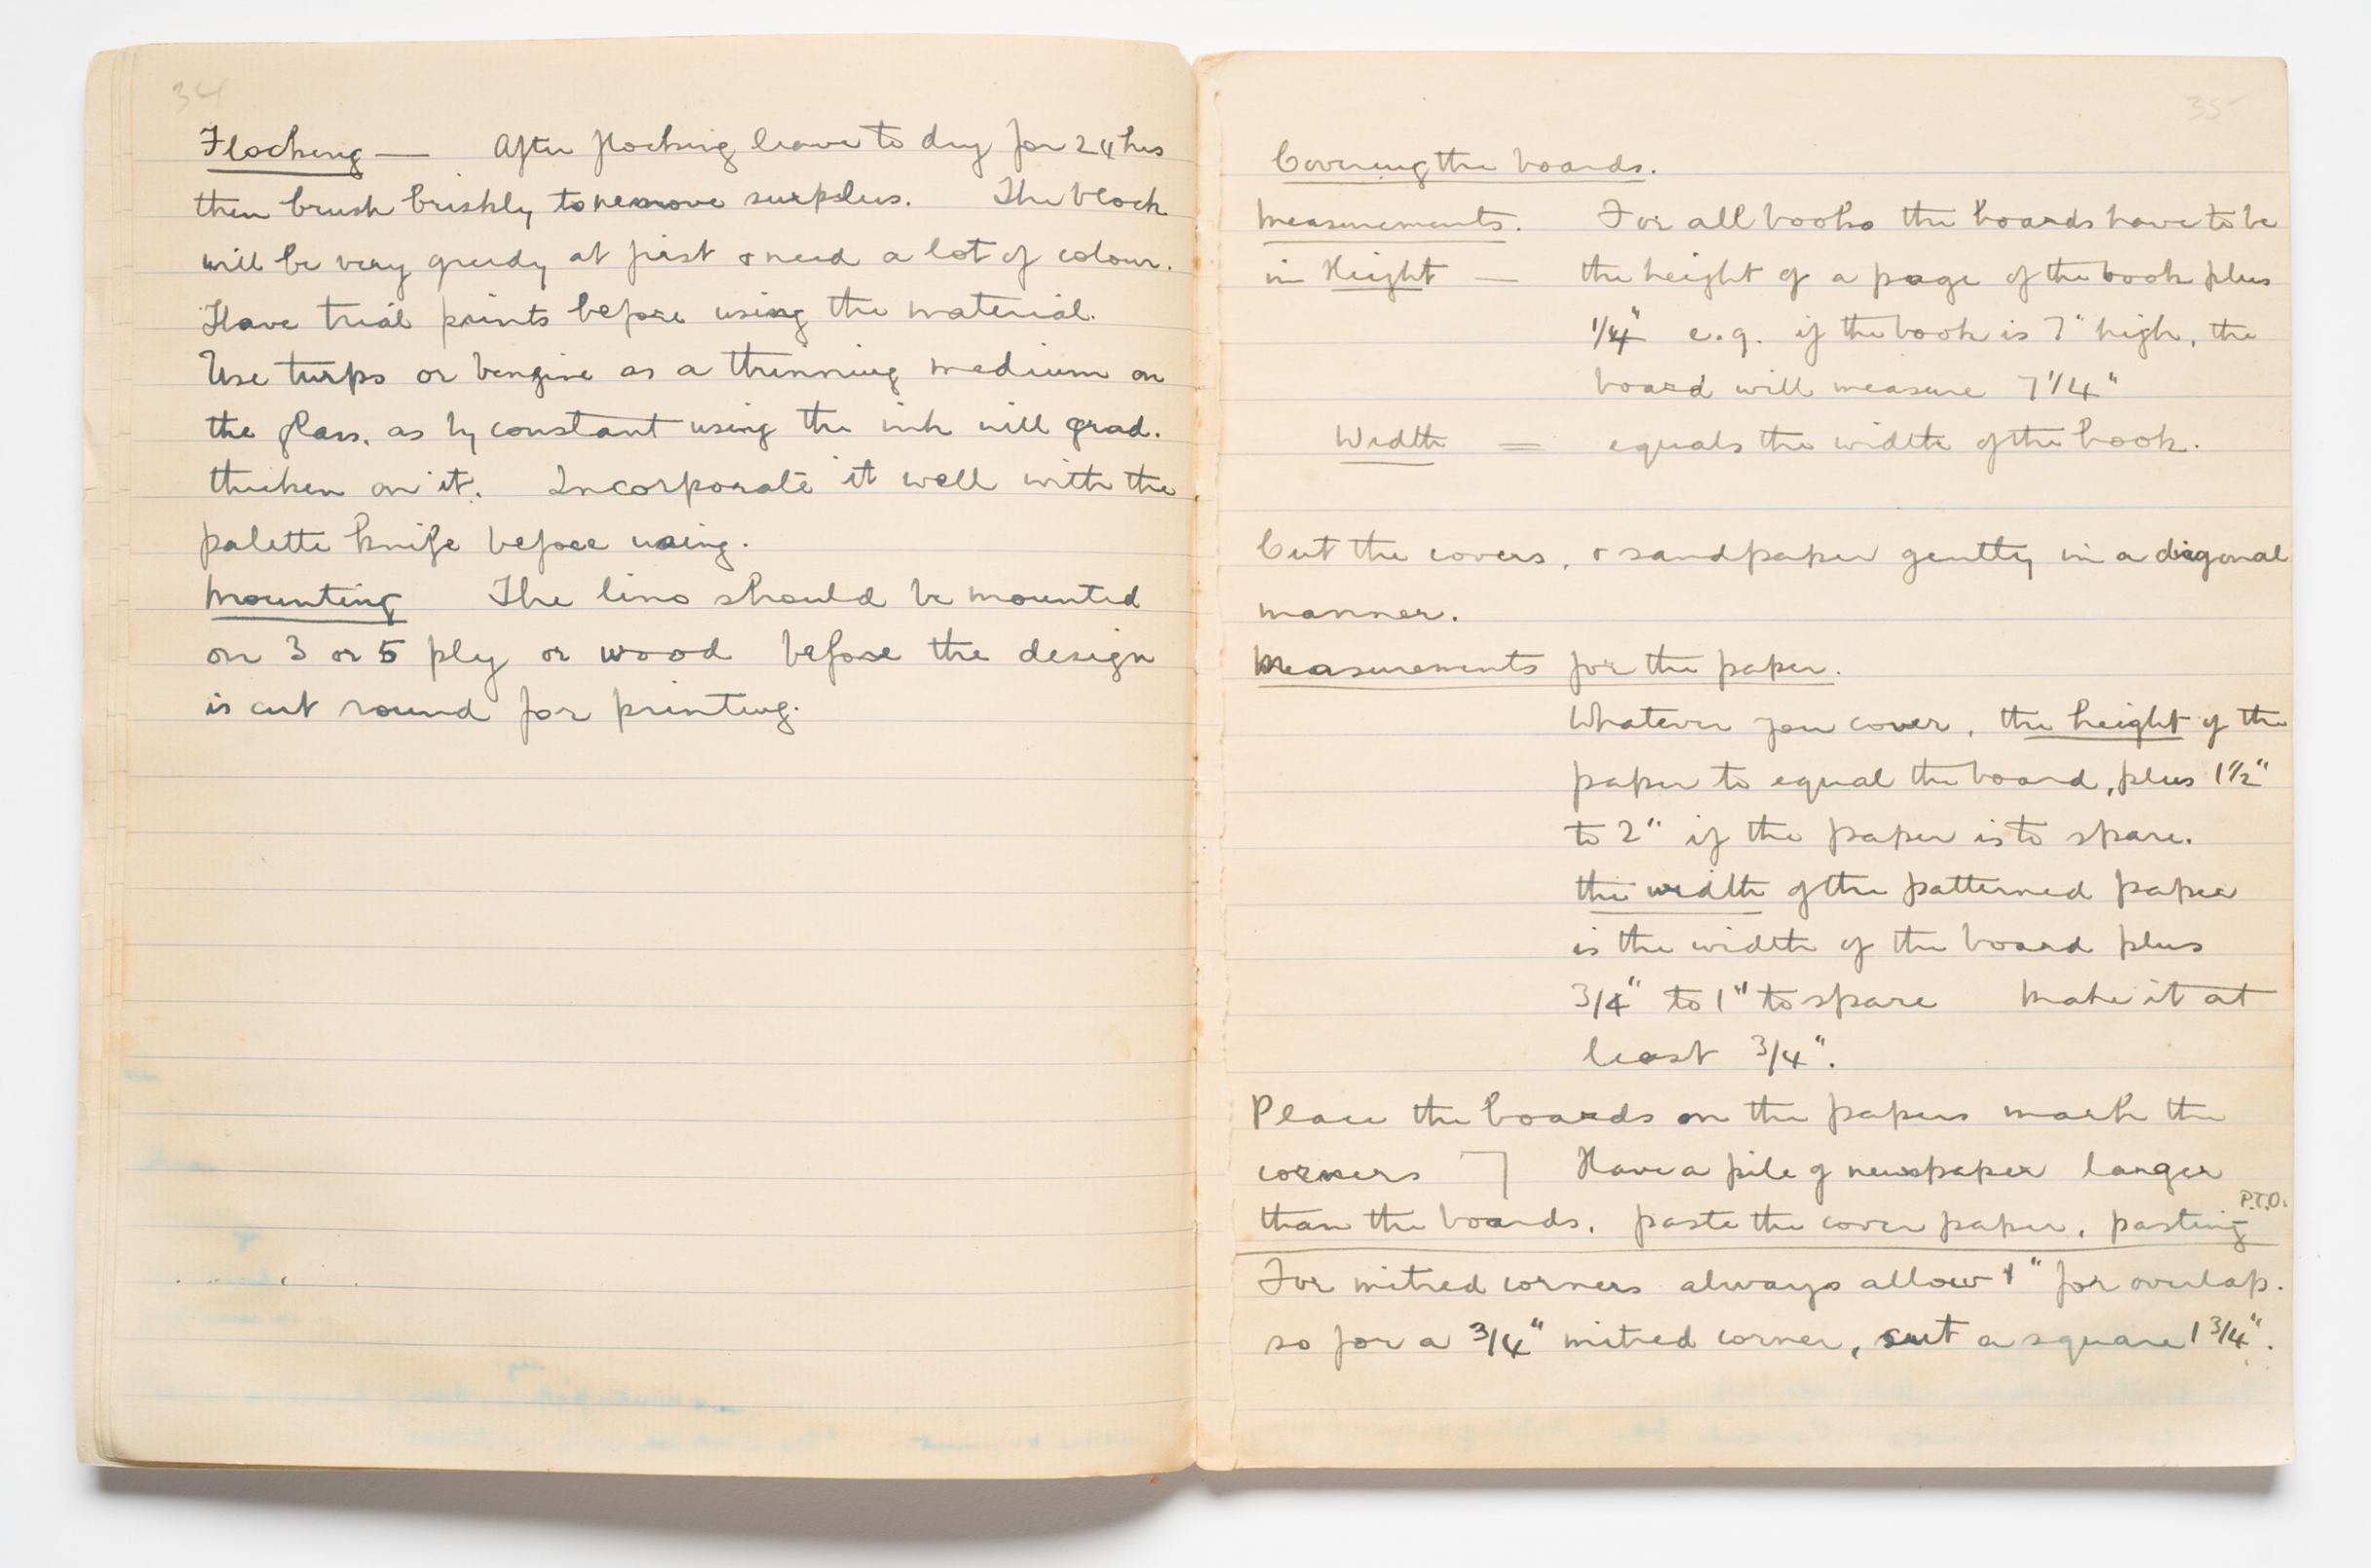 34
Flocking — After flocking leave to dry for 24 hrs
then brush briskly to remove surplus. The block
will be very greedy at first & need a lot of colour.
Have trial prints before using the material.
Use turps or benzine as a thinning medium on
the glass, as by constant using the ink will grad.
thicken on it. Incorporate it well with the
palette knife before using.
Mounting The lino should be mounted
on 3 or 5 ply or wood before the design
is cut round for printing.
35
Covering the boards.
Measurements. For all books the boards have to be
in Height — the height of a page of the book plus
1/4" e.g. if the book is 7" high, the
board will measure 7 1/4"
Width = equals the width of the book.
Cut the covers, & sandpaper gently in a diagonal
manner.
Measurements for the paper.
Whatever you cover, the height of the
paper to equal the board, plus 1 1/2"
to 2" if the paper is to spare.
the width of the patterned paper
is the width of the board plus
3/4" to 1" to spare Make it at
least 3/4".
Place the boards on the papers mark the
corners ┐ Have a pile of newspaper larger
than the boards. paste the cover paper, pasting P.T.O.
For mitred corners always allow 1" for overlap.
so for a 3/4" mitred corner, cut a square 1 3/4".